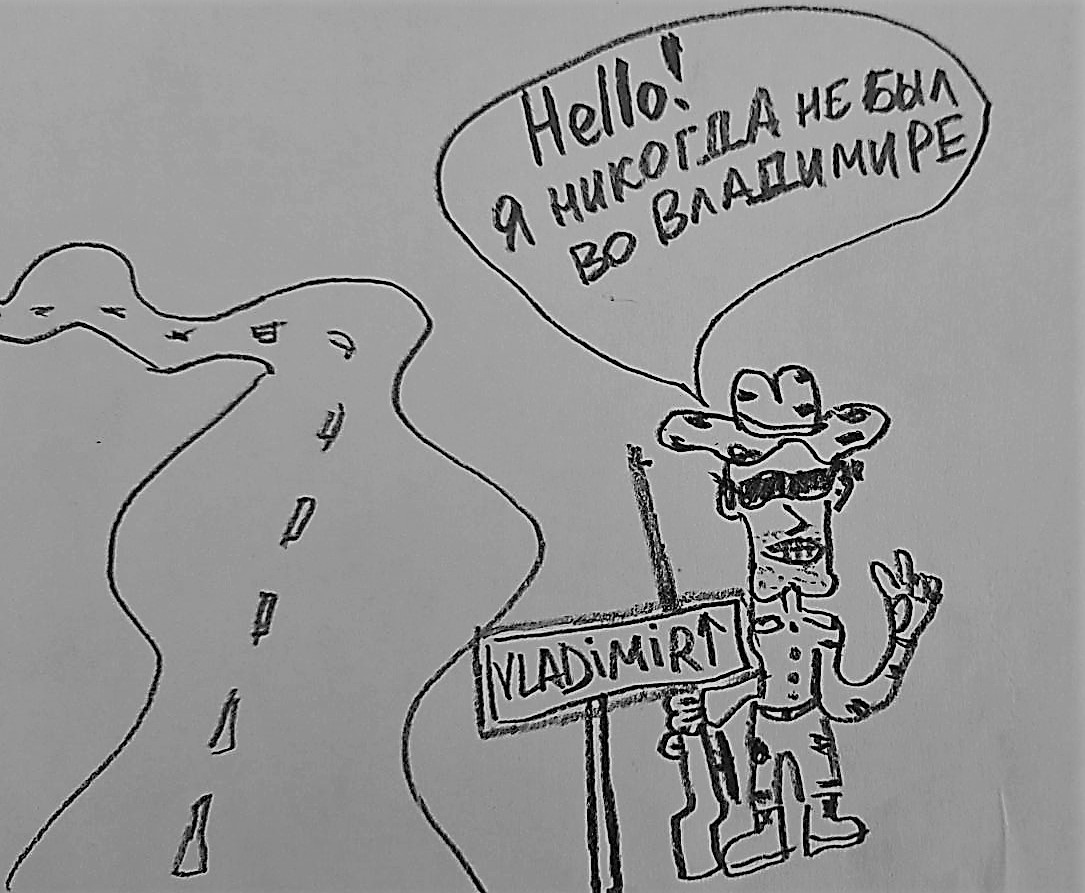 Hello!
Я НИКОГДА НЕ БЫЛ
ВО ВЛАДИМИРЕ
VLADiMiR↑